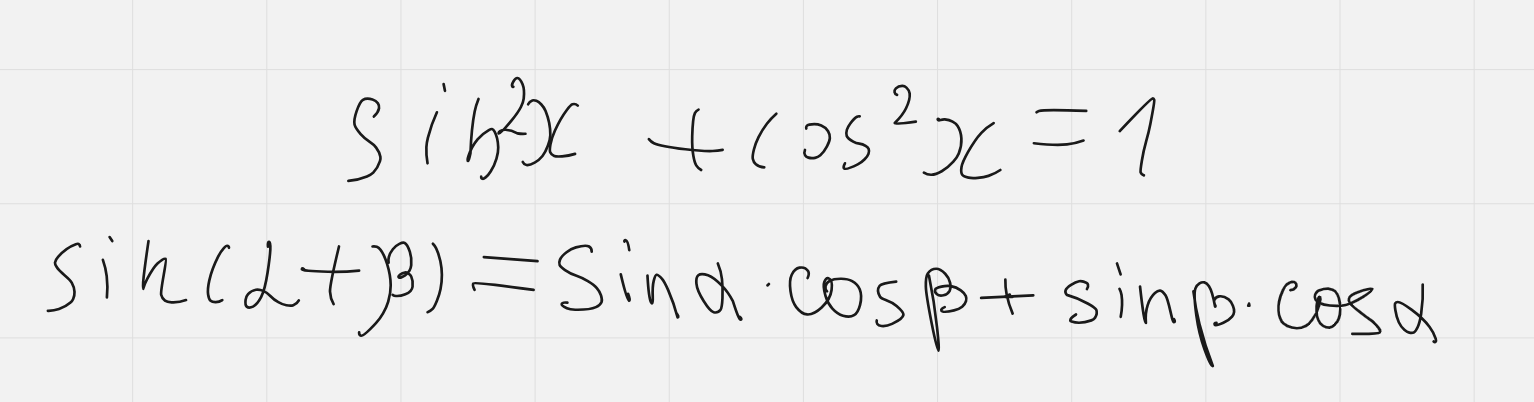 sin²x + cos²x = 1
sin(α+β) = sinα · cosβ + sinβ · cosα